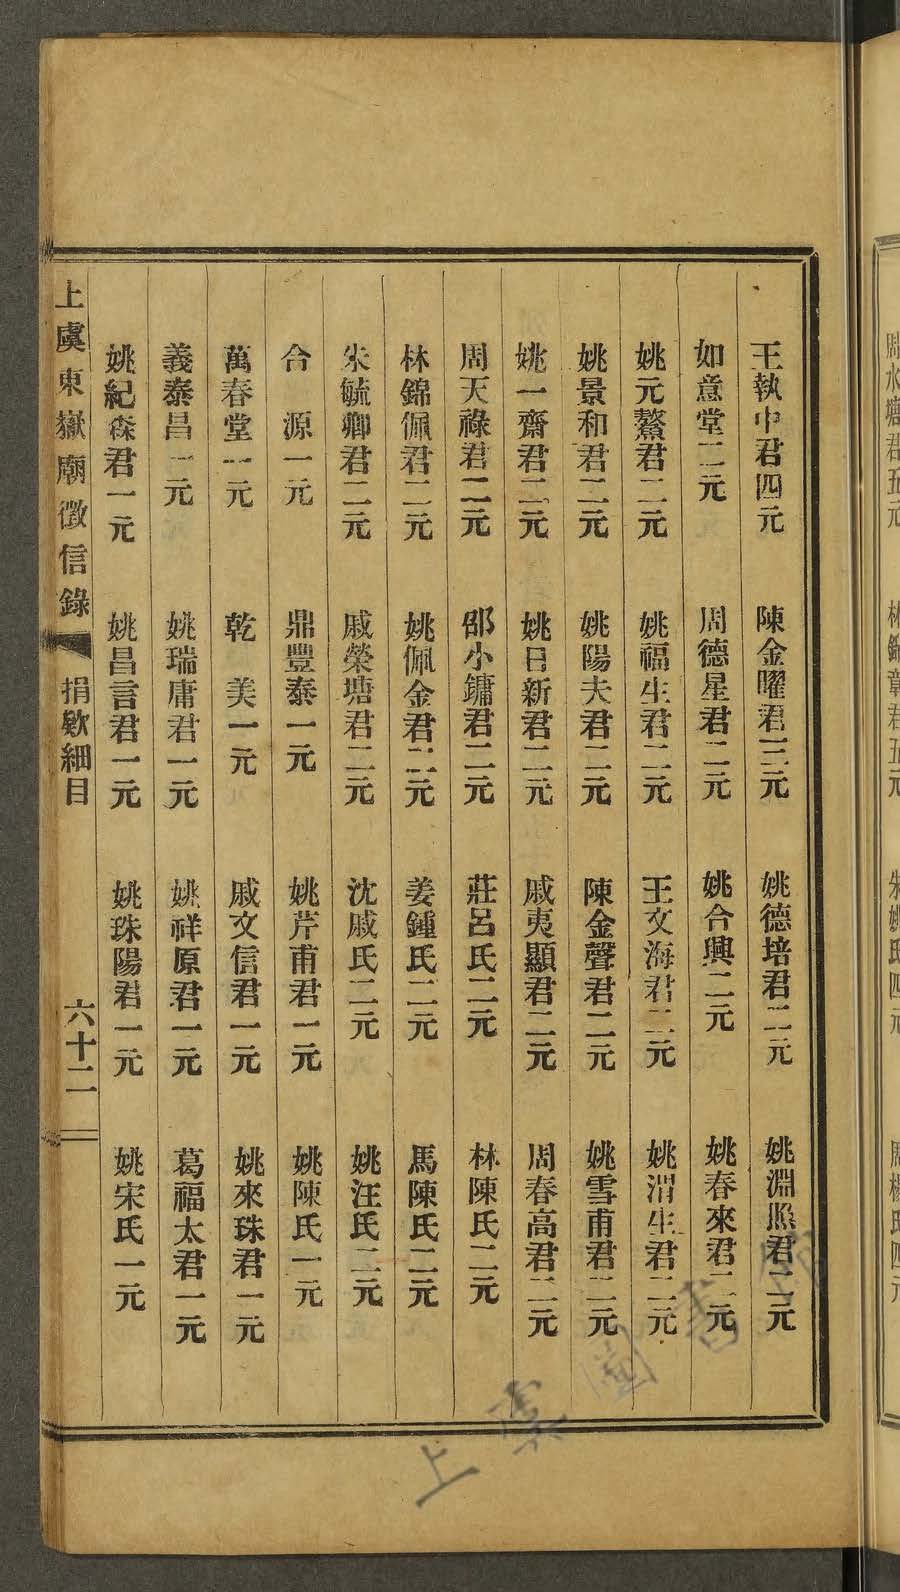 王執中君四元　陳金曜君三元　姚德培君二元　姚淵照君二元
如意堂二元　周德星君二元　姚合興二元　姚春來君二元
姚元鰲君二元　姚福生君二元　王文海君二元　姚渭生君二元
姚景和君二元　姚陽夫君二元　陳金聲君二元　姚雪甫君二元
姚一齋君二元　姚日新君二元　戚夷顯君二元　周春高君二元
周天祿君二元　邵小鏞君二元　莊呂氏二元　林陳氏二元
林錦佩君二元　姚佩金君二元　姜鍾氏二元　馬陳氏二元
朱毓卿君二元　戚榮塘君二元　沈戚氏二元　姚汪氏二元
合源一元　鼎豐泰一元　姚芹甫君一元　姚陳氏一元
萬春堂一元　乾美一元　戚文信君一元　姚來珠君一元
義泰昌一元　姚瑞庸君一元　姚祥原君一元　葛福太君一元
姚紀森君一元　姚昌言君一元　姚珠陽君一元　姚宋氏一元
上虞東嶽廟徵信錄　捐欵細目　六十二
上虞圖書館